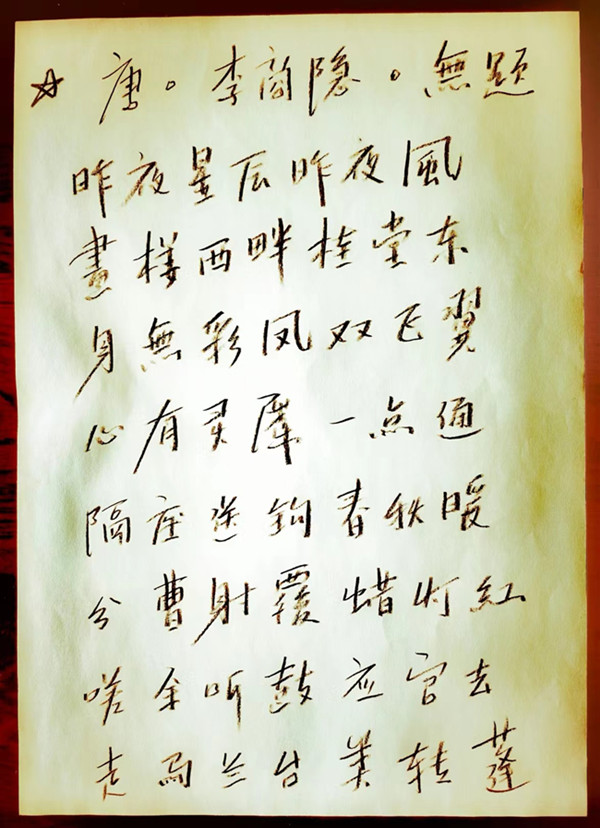 ☆ 唐。李商隐。無题
昨夜星辰昨夜風
畫楼西畔桂堂东
身無彩凤双飞翼
心有灵犀一点通
隔座送鈎春秋暖
分曹射覆蜡灯紅
嗟余听鼓应官去
走马兰台类转蓬